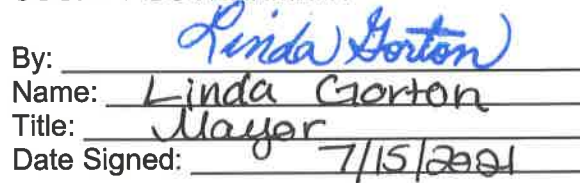 By: Linda Gorton
Name: Linda Gorton
Title: Mayor
Date Signed: 7/15/2021